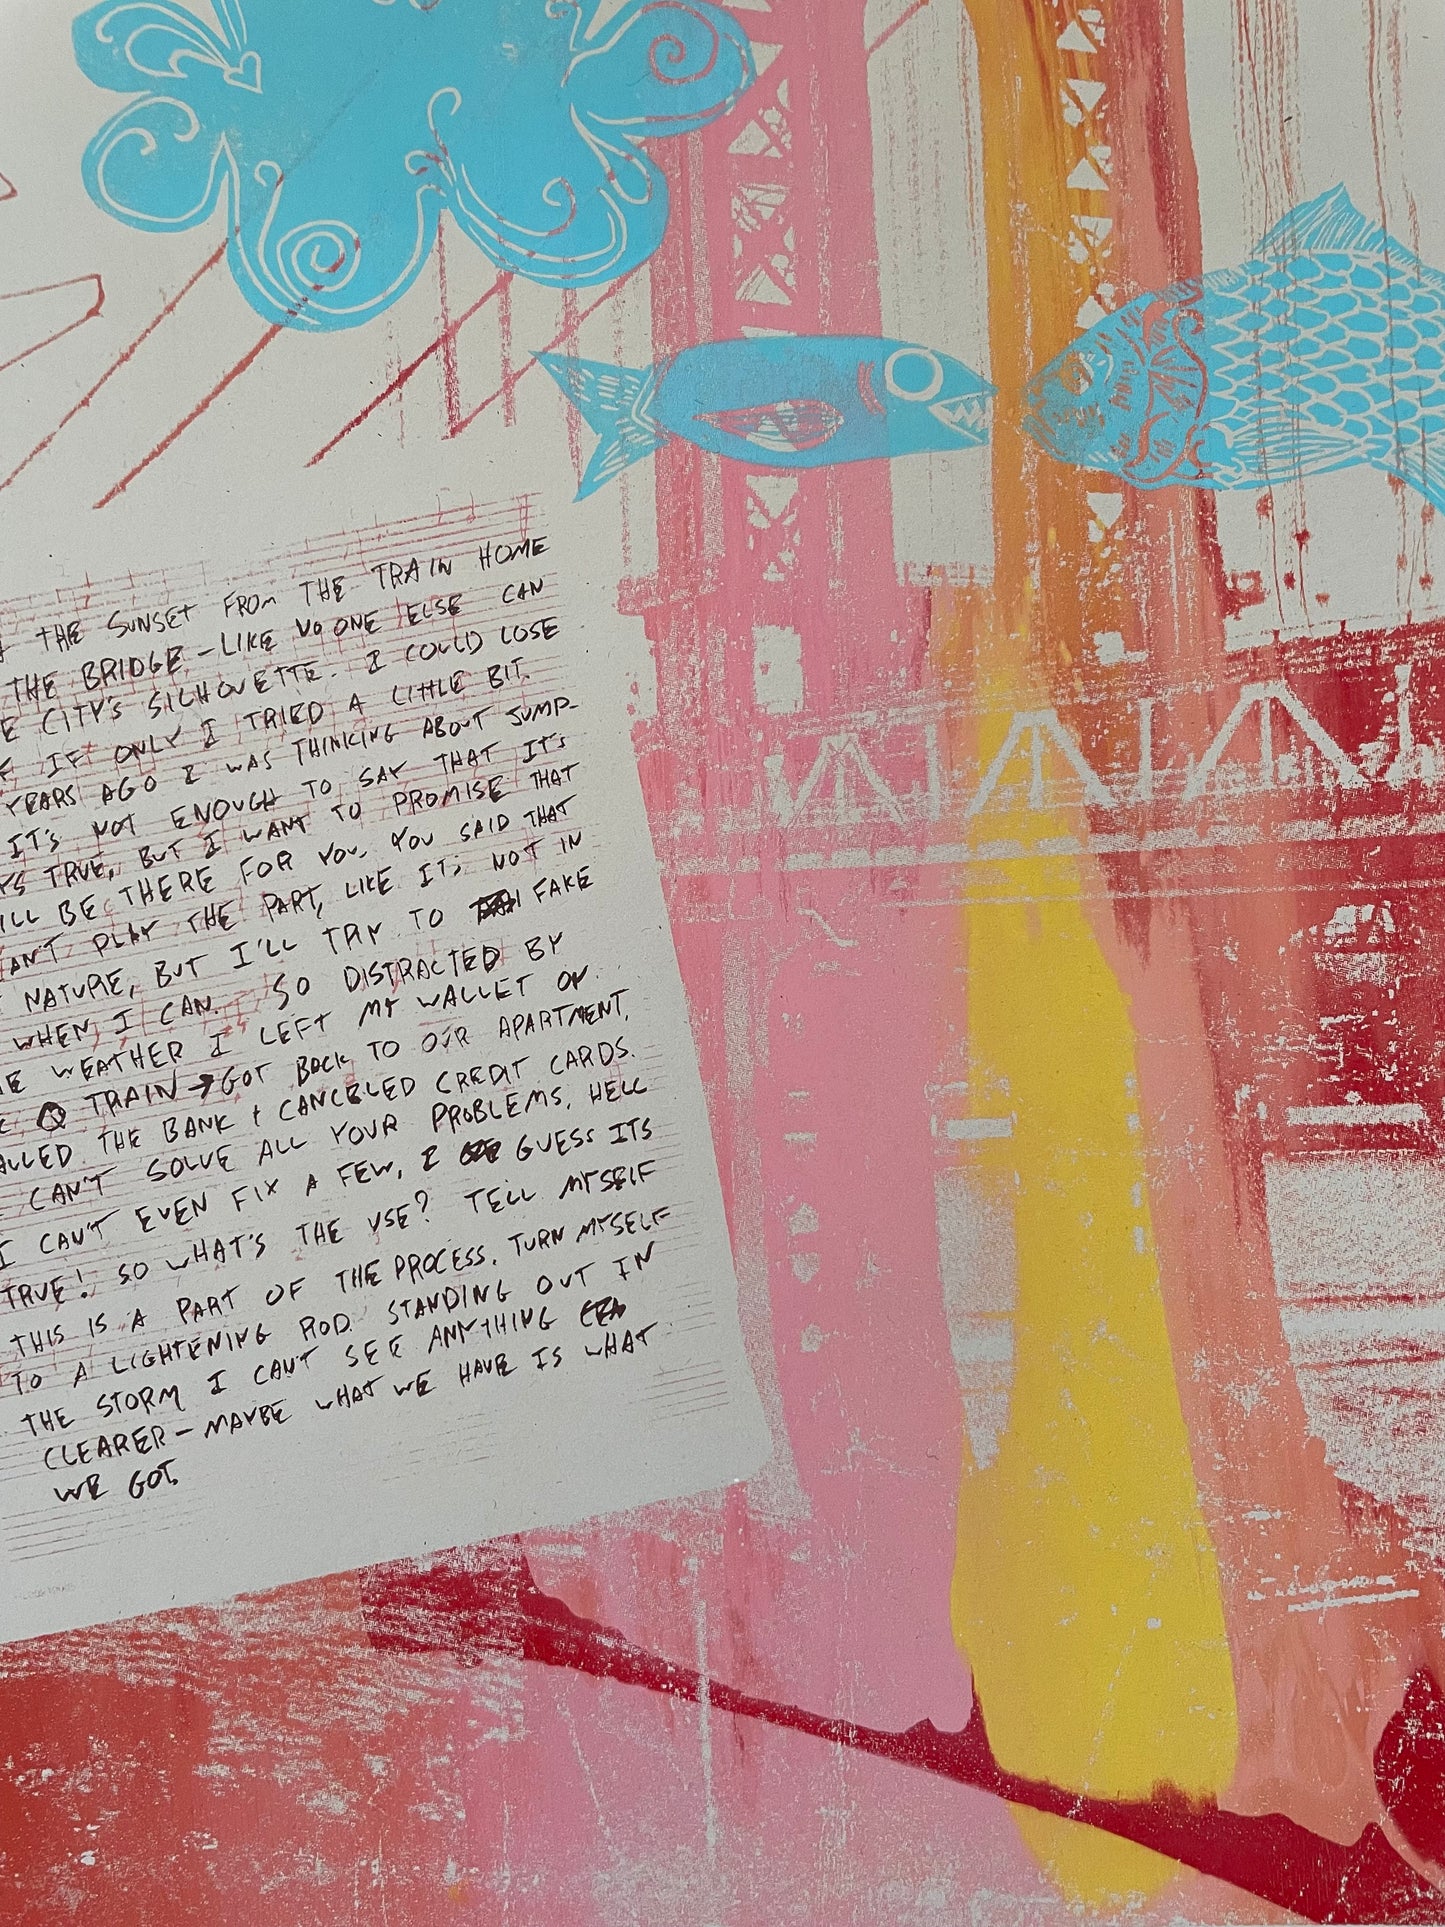 THE SUNSET FROM THE TRAIN HOME
THE BRIDGE - LIKE NO ONE ELSE CAN
E CITY'S SILHOUETTE. I COULD LOSE
IF ONLY I TRIED A LITTLE BIT.
YEARS AGO I WAS THINKING ABOUT JUMP-
IT'S NOT ENOUGH TO SAY THAT IT'S
TRUE, BUT I WANT TO PROMISE THAT
ILL BE THERE FOR YOU. YOU SAID THAT
AN'T PLAY THE PART, LIKE IT'S NOT IN
NATURE, BUT I'LL TRY TO FAKE
WHEN I CAN. SO DISTRACTED BY
E WEATHER I LEFT MY WALLET ON
Q TRAIN → GOT BACK TO OUR APARTMENT,
ALLED THE BANK + CANCELED CREDIT CARDS.
CAN'T SOLVE ALL YOUR PROBLEMS, HELL
I CAN'T EVEN FIX A FEW, I GUESS ITS
TRUE! SO WHAT'S THE USE? TELL MYSELF
THIS IS A PART OF THE PROCESS. TURN MYSELF
TO A LIGHTENING ROD. STANDING OUT IN
THE STORM I CAN'T SEE ANYTHING
CLEARER - MAYBE WHAT WE HAVE IS WHAT
WE GOT.